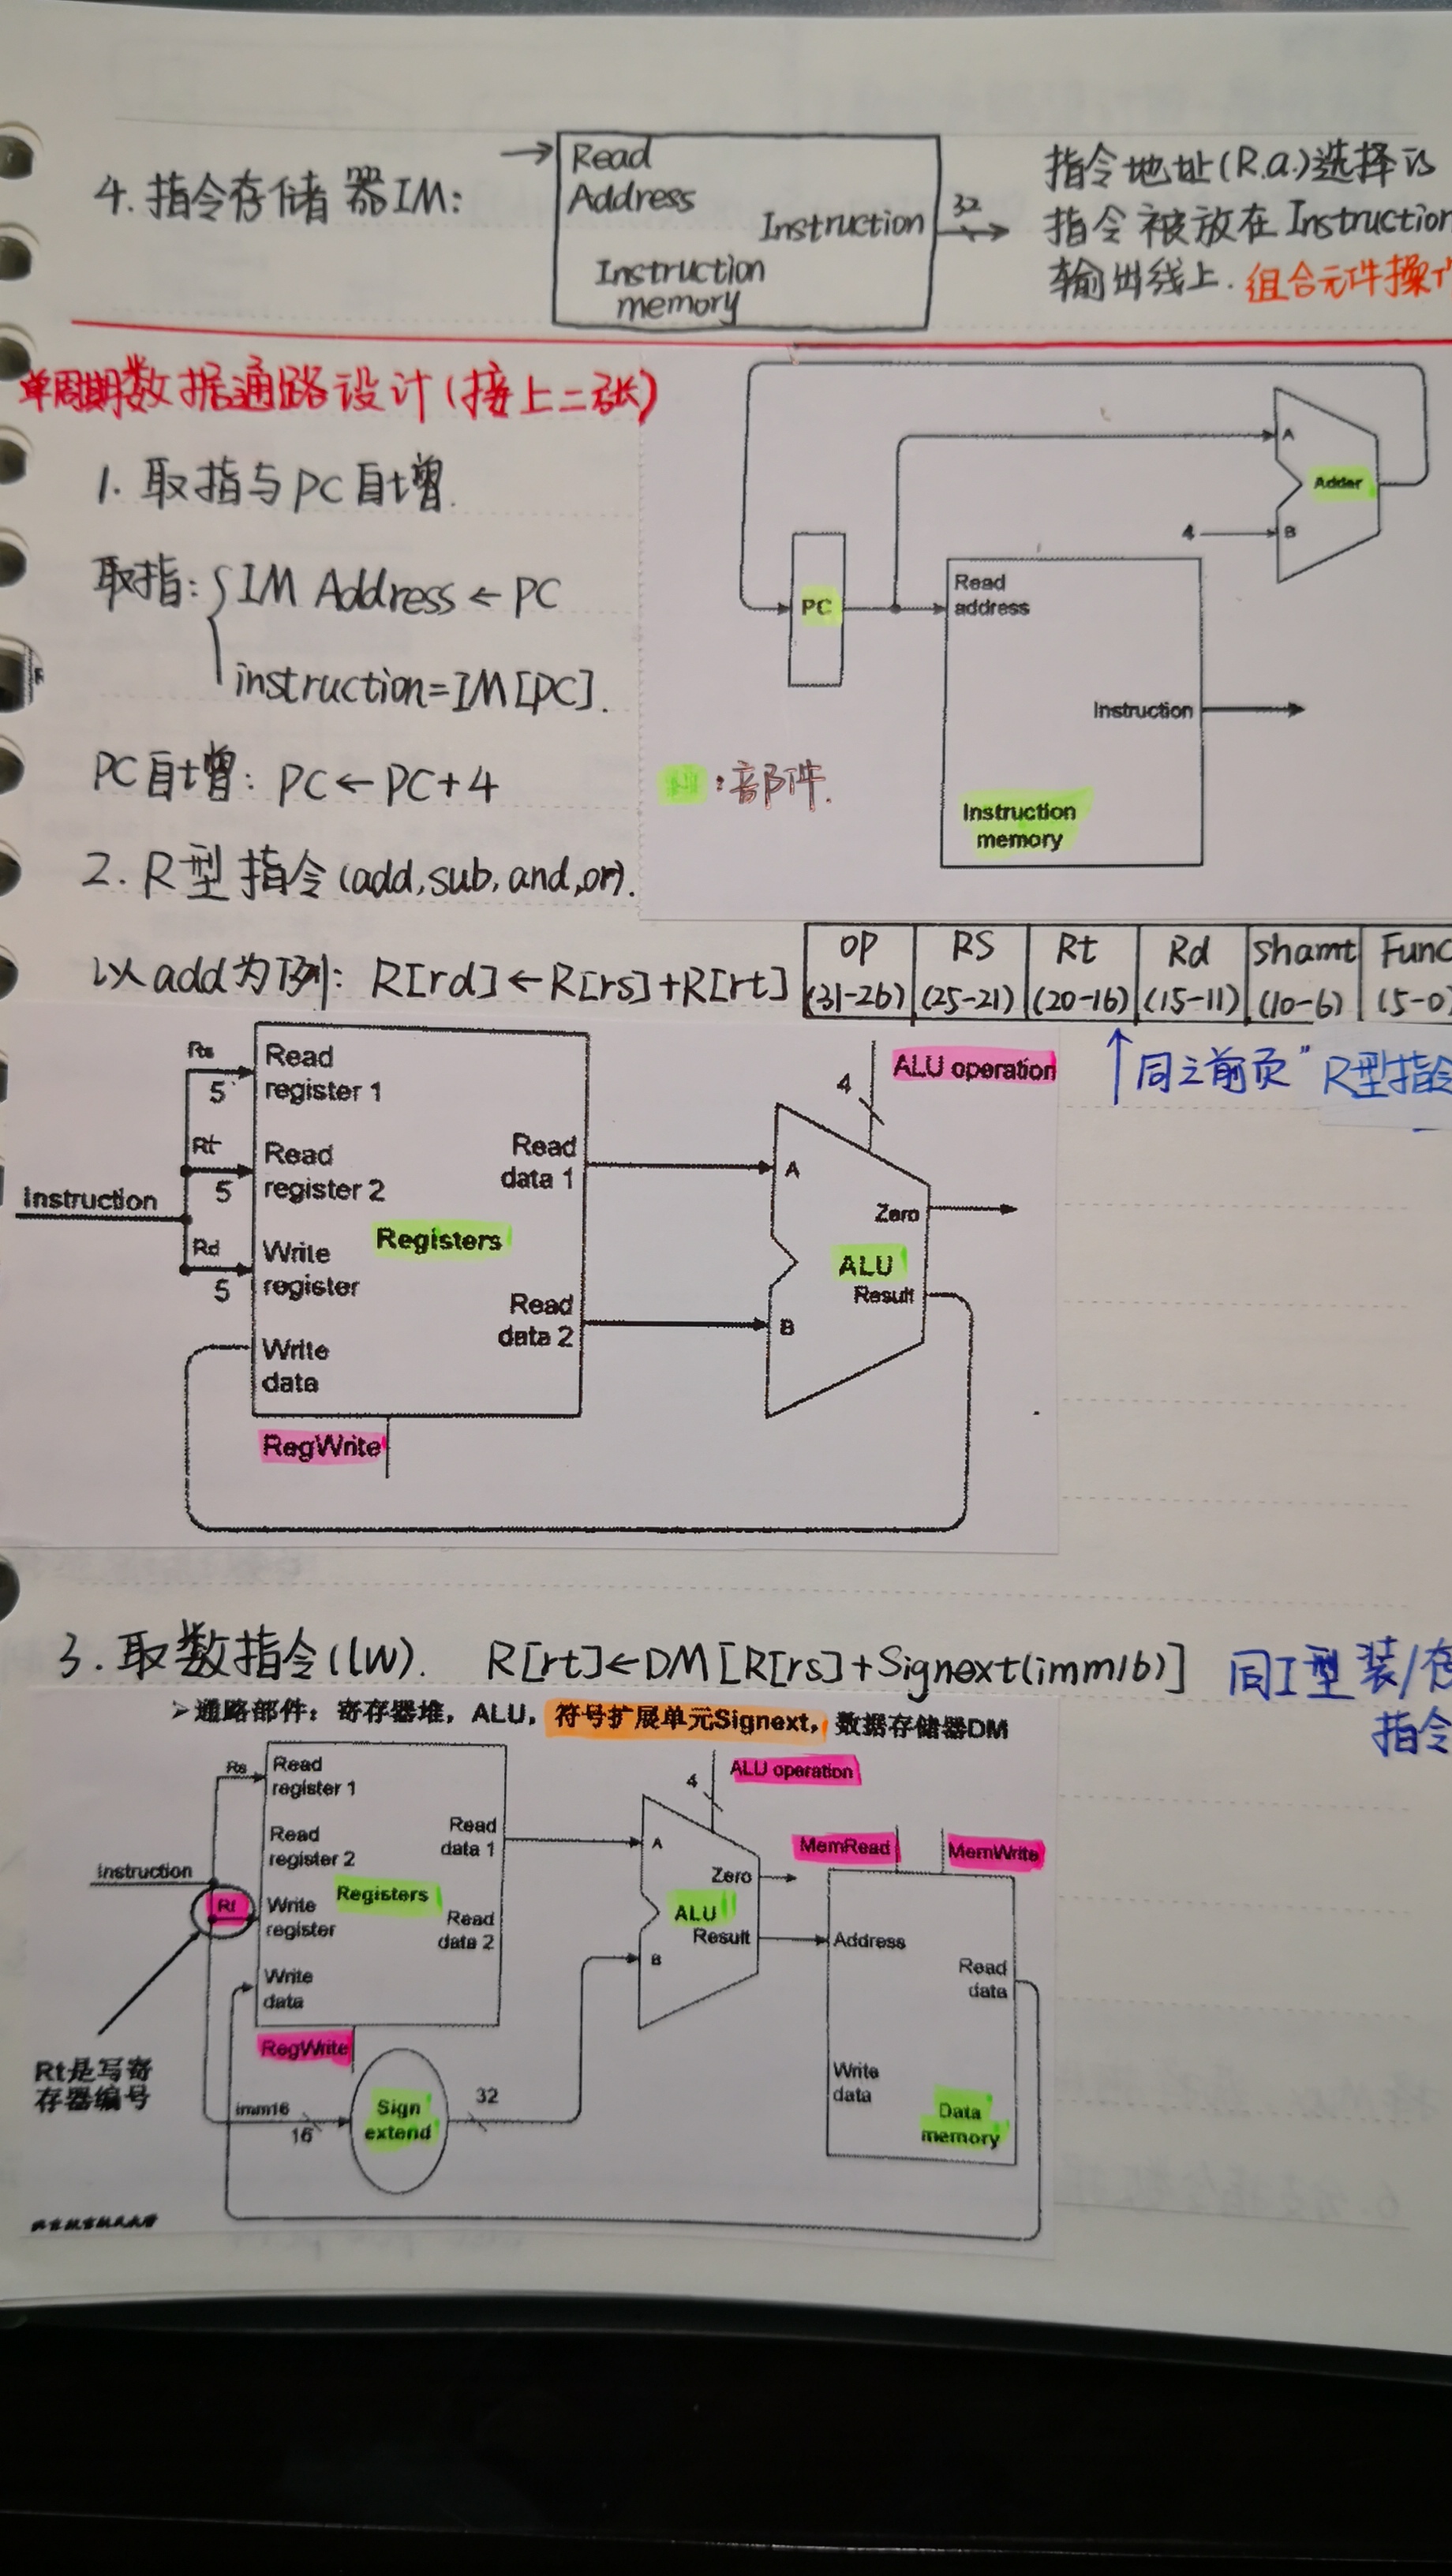 4. 指令存储器IM:
Read
Address
Instruction
Instruction
memory
32
指令地址(R.a.)选择的
指令被放在Instruction
输出线上. 组合元件操
单周期数据通路设计(接上二张)
1. 取指与PC自增.
取指: IM Address ← PC
instruction=IM[PC].
PC自增: PC ← PC+4
A
Adder
4
B
PC
Read
address
Instruction
Instruction
memory
: 部件.
2. R型指令(add, sub, and, or).
以add为例: R[rd] ← R[rs]+R[rt]
OP RS Rt Rd Shamt Func
(31-26) (25-21) (20-16) (15-11) (10-6) (5-0)
↑同之前页"R型指令
Instruction
Rs
5
Rt
5
Rd
5
Read
register 1
Read
register 2
Write
register
Write
data
Registers
Read
data 1
Read
data 2
RegWrite
4
ALU operation
A
B
Zero
ALU
Result
3. 取数指令(lw). R[rt]←DM[R[rs]+Signext(imm16)]
同I型装/存
指令
➢通路部件：寄存器堆，ALU，符号扩展单元Signext，数据存储器DM
Instruction
Rs
Rt
Read
register 1
Read
register 2
Write
register
Write
data
Registers
Read
data 1
Read
data 2
RegWrite
4
ALU operation
A
B
Zero
ALU
Result
MemRead
MemWrite
Address
Read
data
Write
data
Data
memory
Rt是写寄
存器编号
imm16
16
Sign
extend
32